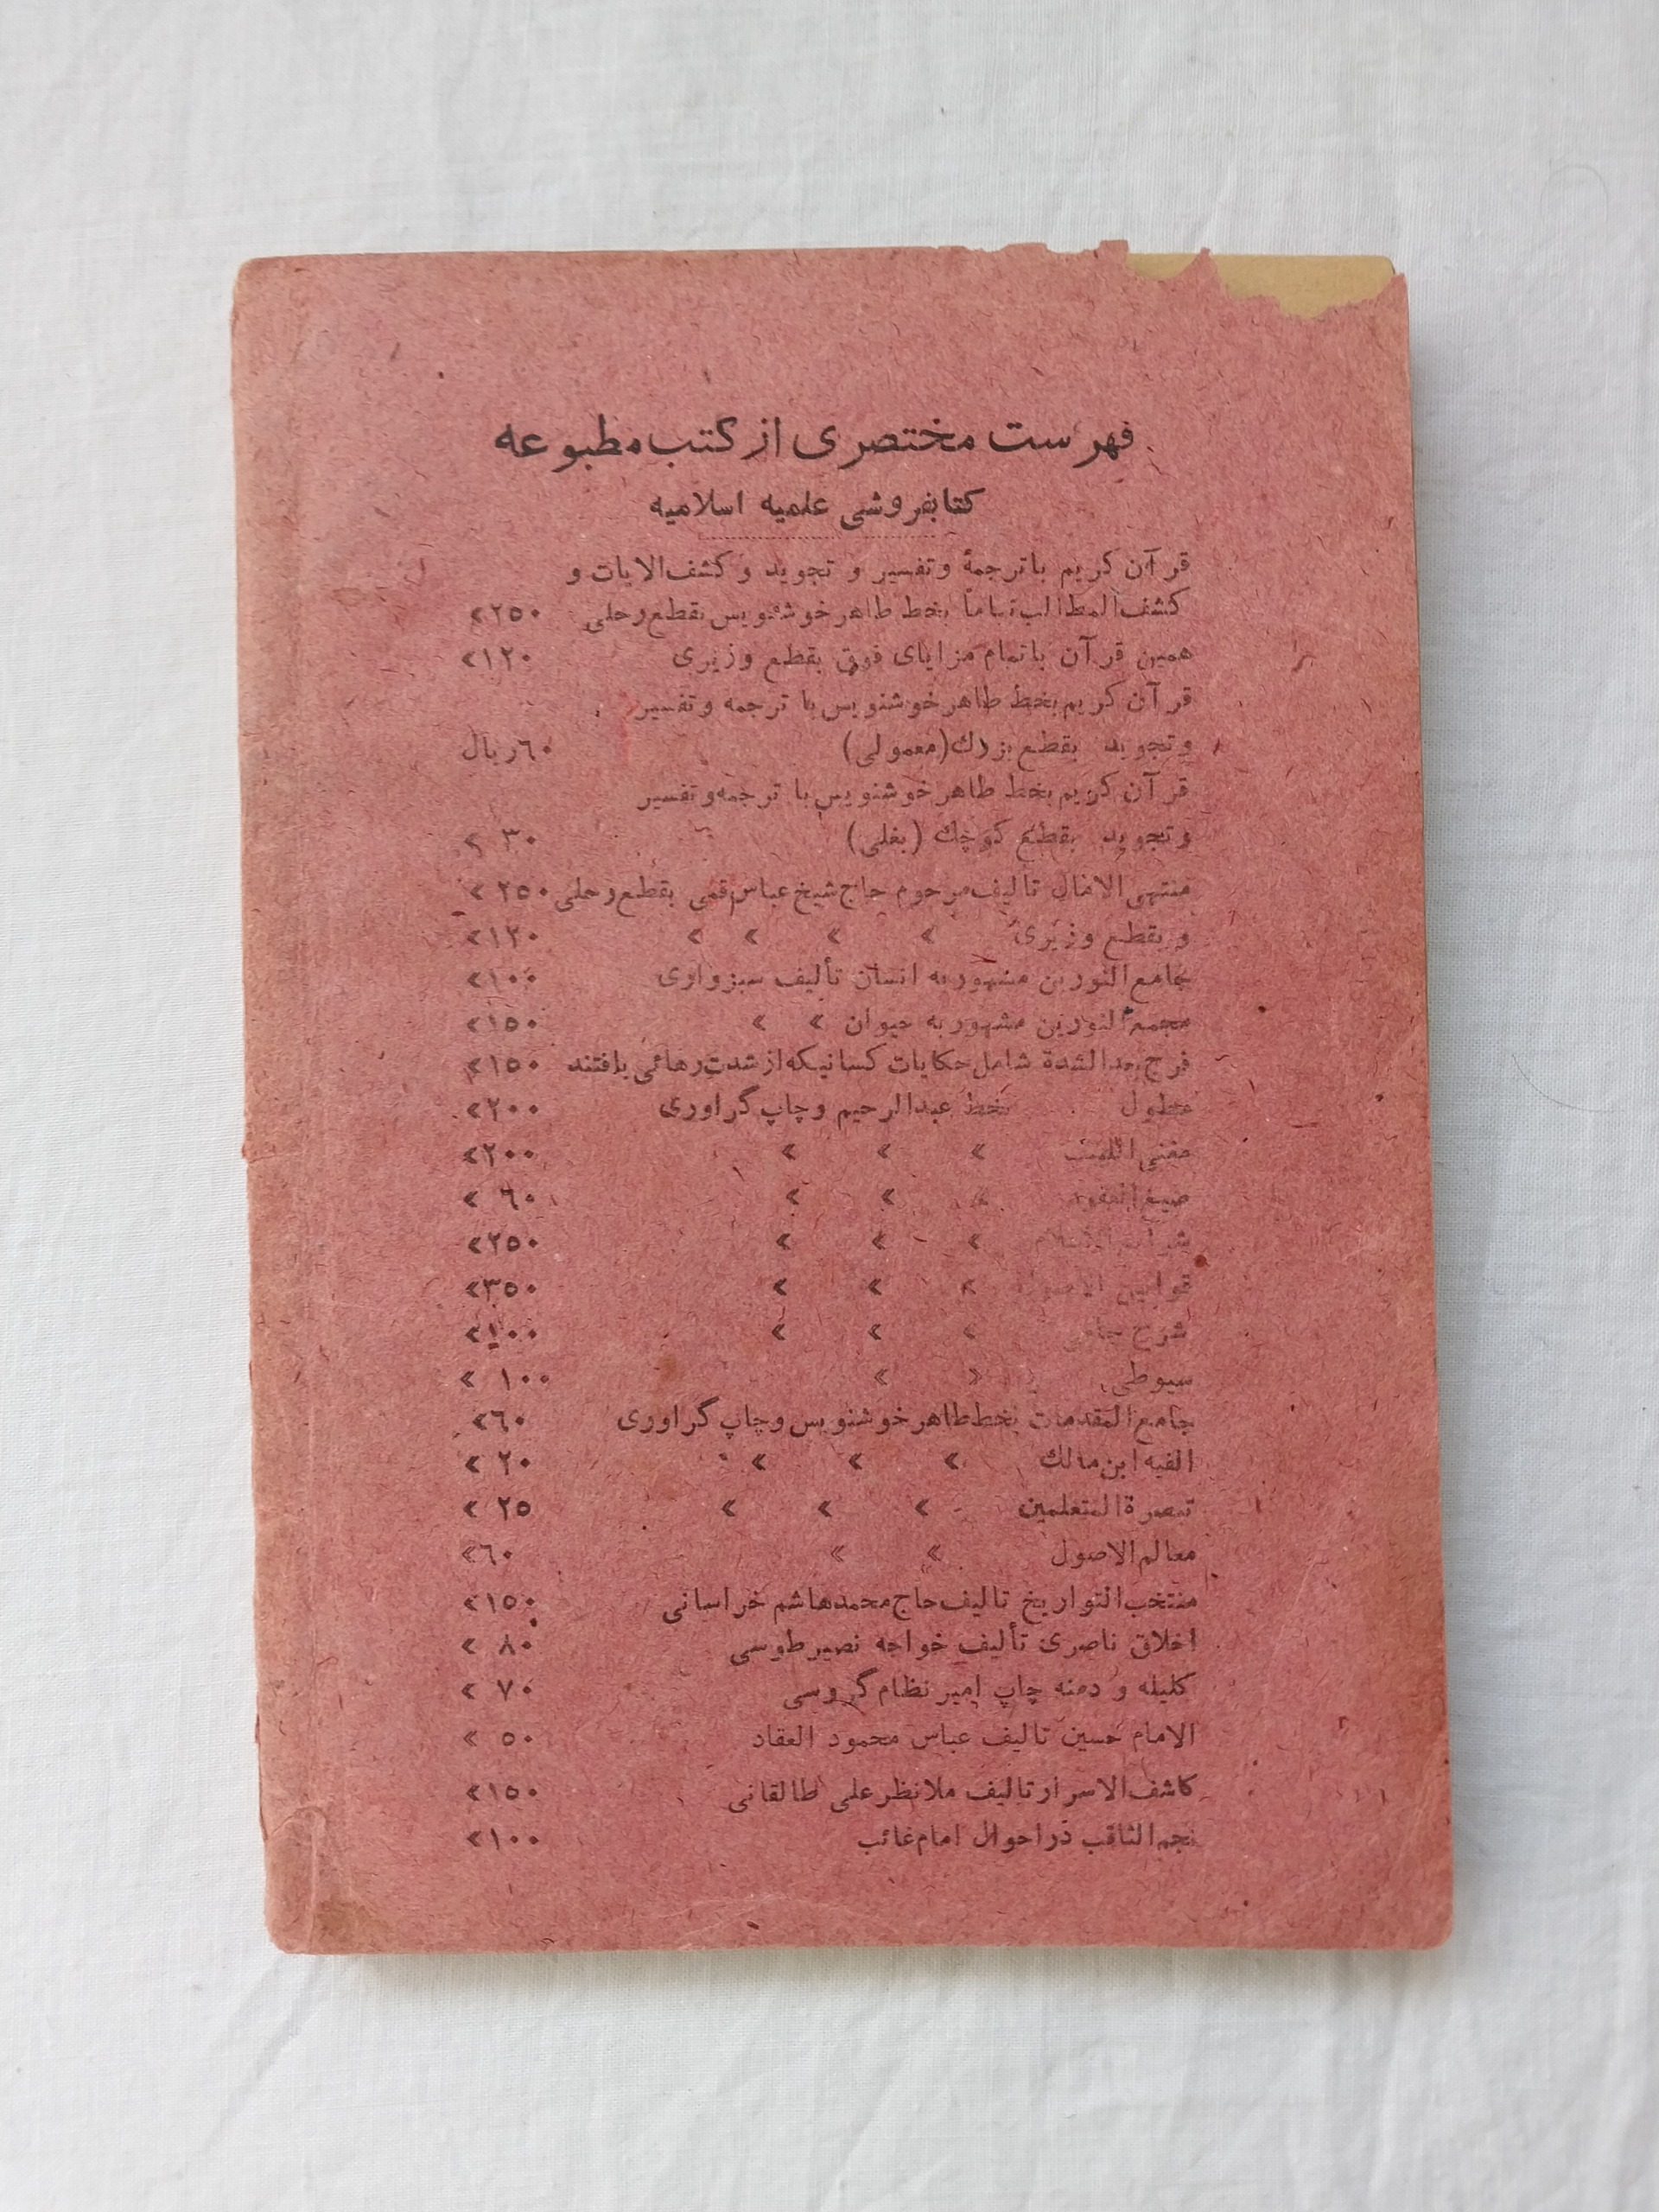 فهرست مختصری از کتب مطبوعه
کتابفروشی علمیه اسلامیه
قرآن کریم با ترجمهٔ و تفسیر و تجوید و کشف‌الایات و
کشف‌المطالب تماماً بخط طاهر خوشنویس بقطع رحلی ۲۵۰ »
همین قرآن با تمام مزایای فوق بقطع وزیری ۱۲۰ »
قرآن کریم بخط طاهر خوشنویس با ترجمه و تفسیر
و تجوید بقطع بزرك (معمولی) ٦۰ ریال
قرآن کریم بخط طاهر خوشنویس با ترجمه و تفسیر
و تجوید بقطع کوچك (بغلی) ۳۰ »
منتهی الامال تالیف مرحوم حاج شیخ عباس قمی بقطع رحلی ۲۵۰ »
و بقطع وزیری » » » » ۱۲۰ »
جامع النورین مشهور به انسان تألیف سبزواری ۱۰۰ »
مجمع النورین مشهور به حیوان » » ۱۵۰ »
فرج بعد الشدة شامل حکایات کسانیکه از شدت رهائی یافتند ۱۵۰ »
مطول بخط عبدالرحیم و چاپ گراوری ۲۰۰ »
مغنی اللبیب » » » ۲۰۰ »
صیغ العقود » » » ٦۰ »
شرایع الاسلام » » » ۲۵۰ »
قوانین الاصول » » » ۳۵۰ »
شرح جامی » » » ۱۰۰ »
سیوطی » » ۱۰۰ »
جامع المقدمات بخط طاهر خوشنویس و چاپ گراوری ٦۰ »
الفیه ابن مالك » » » ۲۰ »
تبصرة المتعلمین » » » ۲۵ »
معالم الاصول » » ٦۰ »
منتخب التواریخ تالیف حاج محمد هاشم خراسانی ۱۵۰ »
اخلاق ناصری تألیف خواجه نصیر طوسی ۸۰ »
کلیله و دمنه چاپ امیر نظام گروسی ۷۰ »
الامام حسین تالیف عباس محمود العقاد ۵۰ »
کاشف الاسرار تالیف ملا نظر علی طالقانی ۱۵۰ »
نجم الثاقب در احوال امام غائب ۱۰۰ »